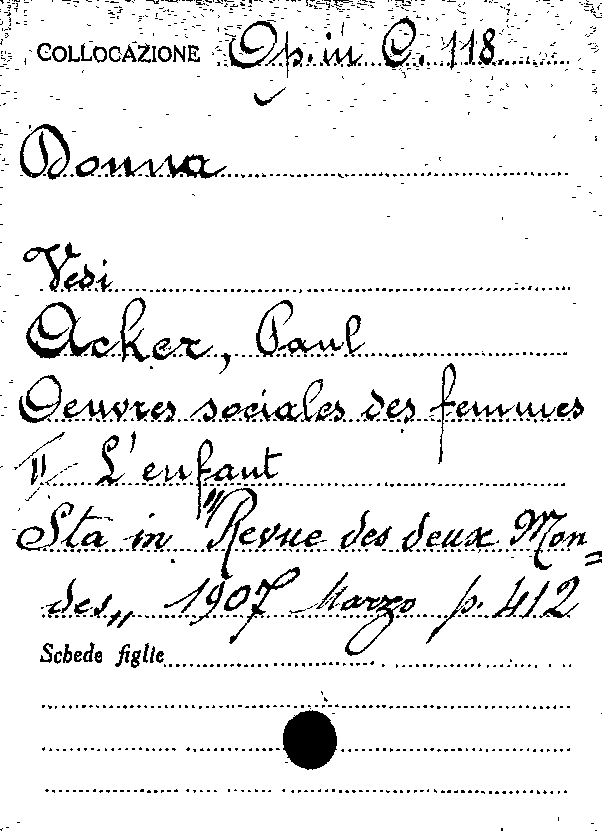 COLLOCAZIONE Op. in C. 118
Donna
Vesi
Acker, Paul
Oeuvres sociales des femmes
II L'enfant
Sta in "Revue des deux Mon=
des„ 1907 Marzo p. 412
Schede figlie